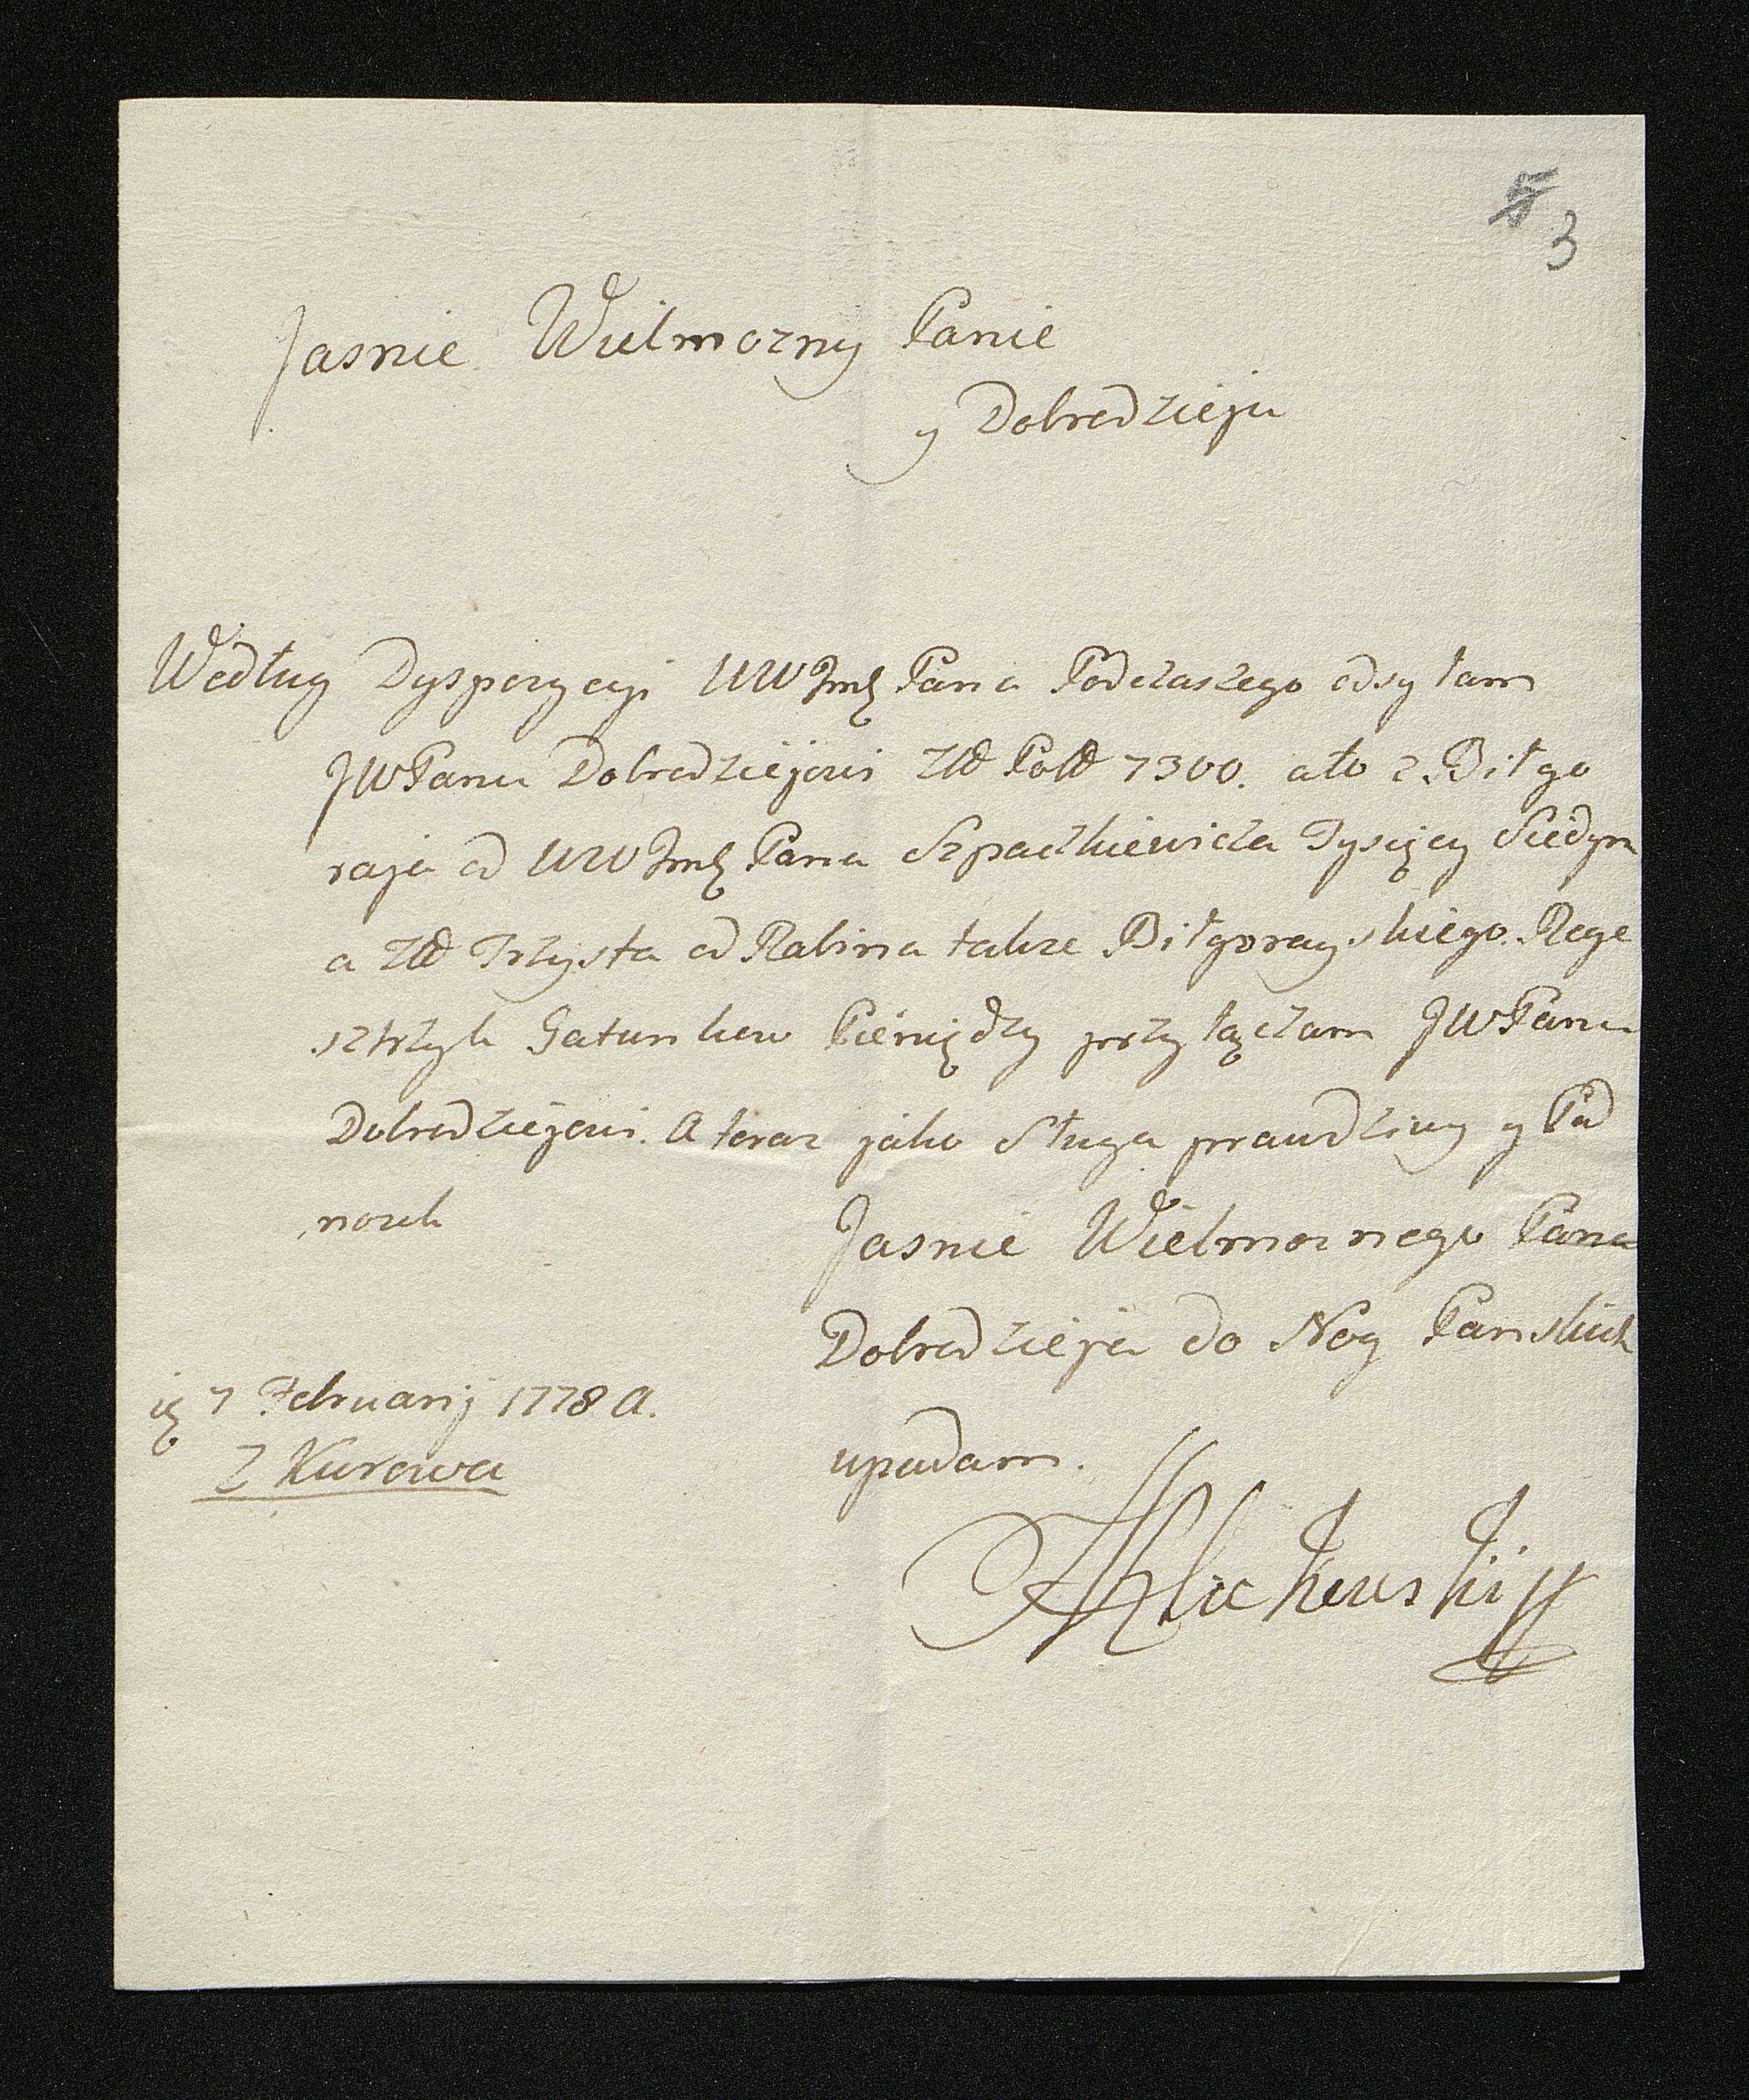 3
Jasnie Wielmozny Panie
y Dobrodzieju
Według Dyspozycyi WW Jmę Pana Podczaszego odsyłam
JWPanu Dobrodziejowi Złł Poll 7300. a to z Biłgo
raja od WW Jmę Pana Szpaczkiewicza Tysięcy Siedym
a Złł Trzysta od Rabina takze Biłgorayskiego. Rege
sztrzyk Gatunkow Pieniędzy przyłączam JWPanu
Dobrodziejowi. A teraz jako Sługa prawdziwy y Pod
nozek
Jasnie Wielmoznego Pana
Dobrodzieja do Nog Panskich
upadam.
7 Februarij 1778 A.
Z Kurowa